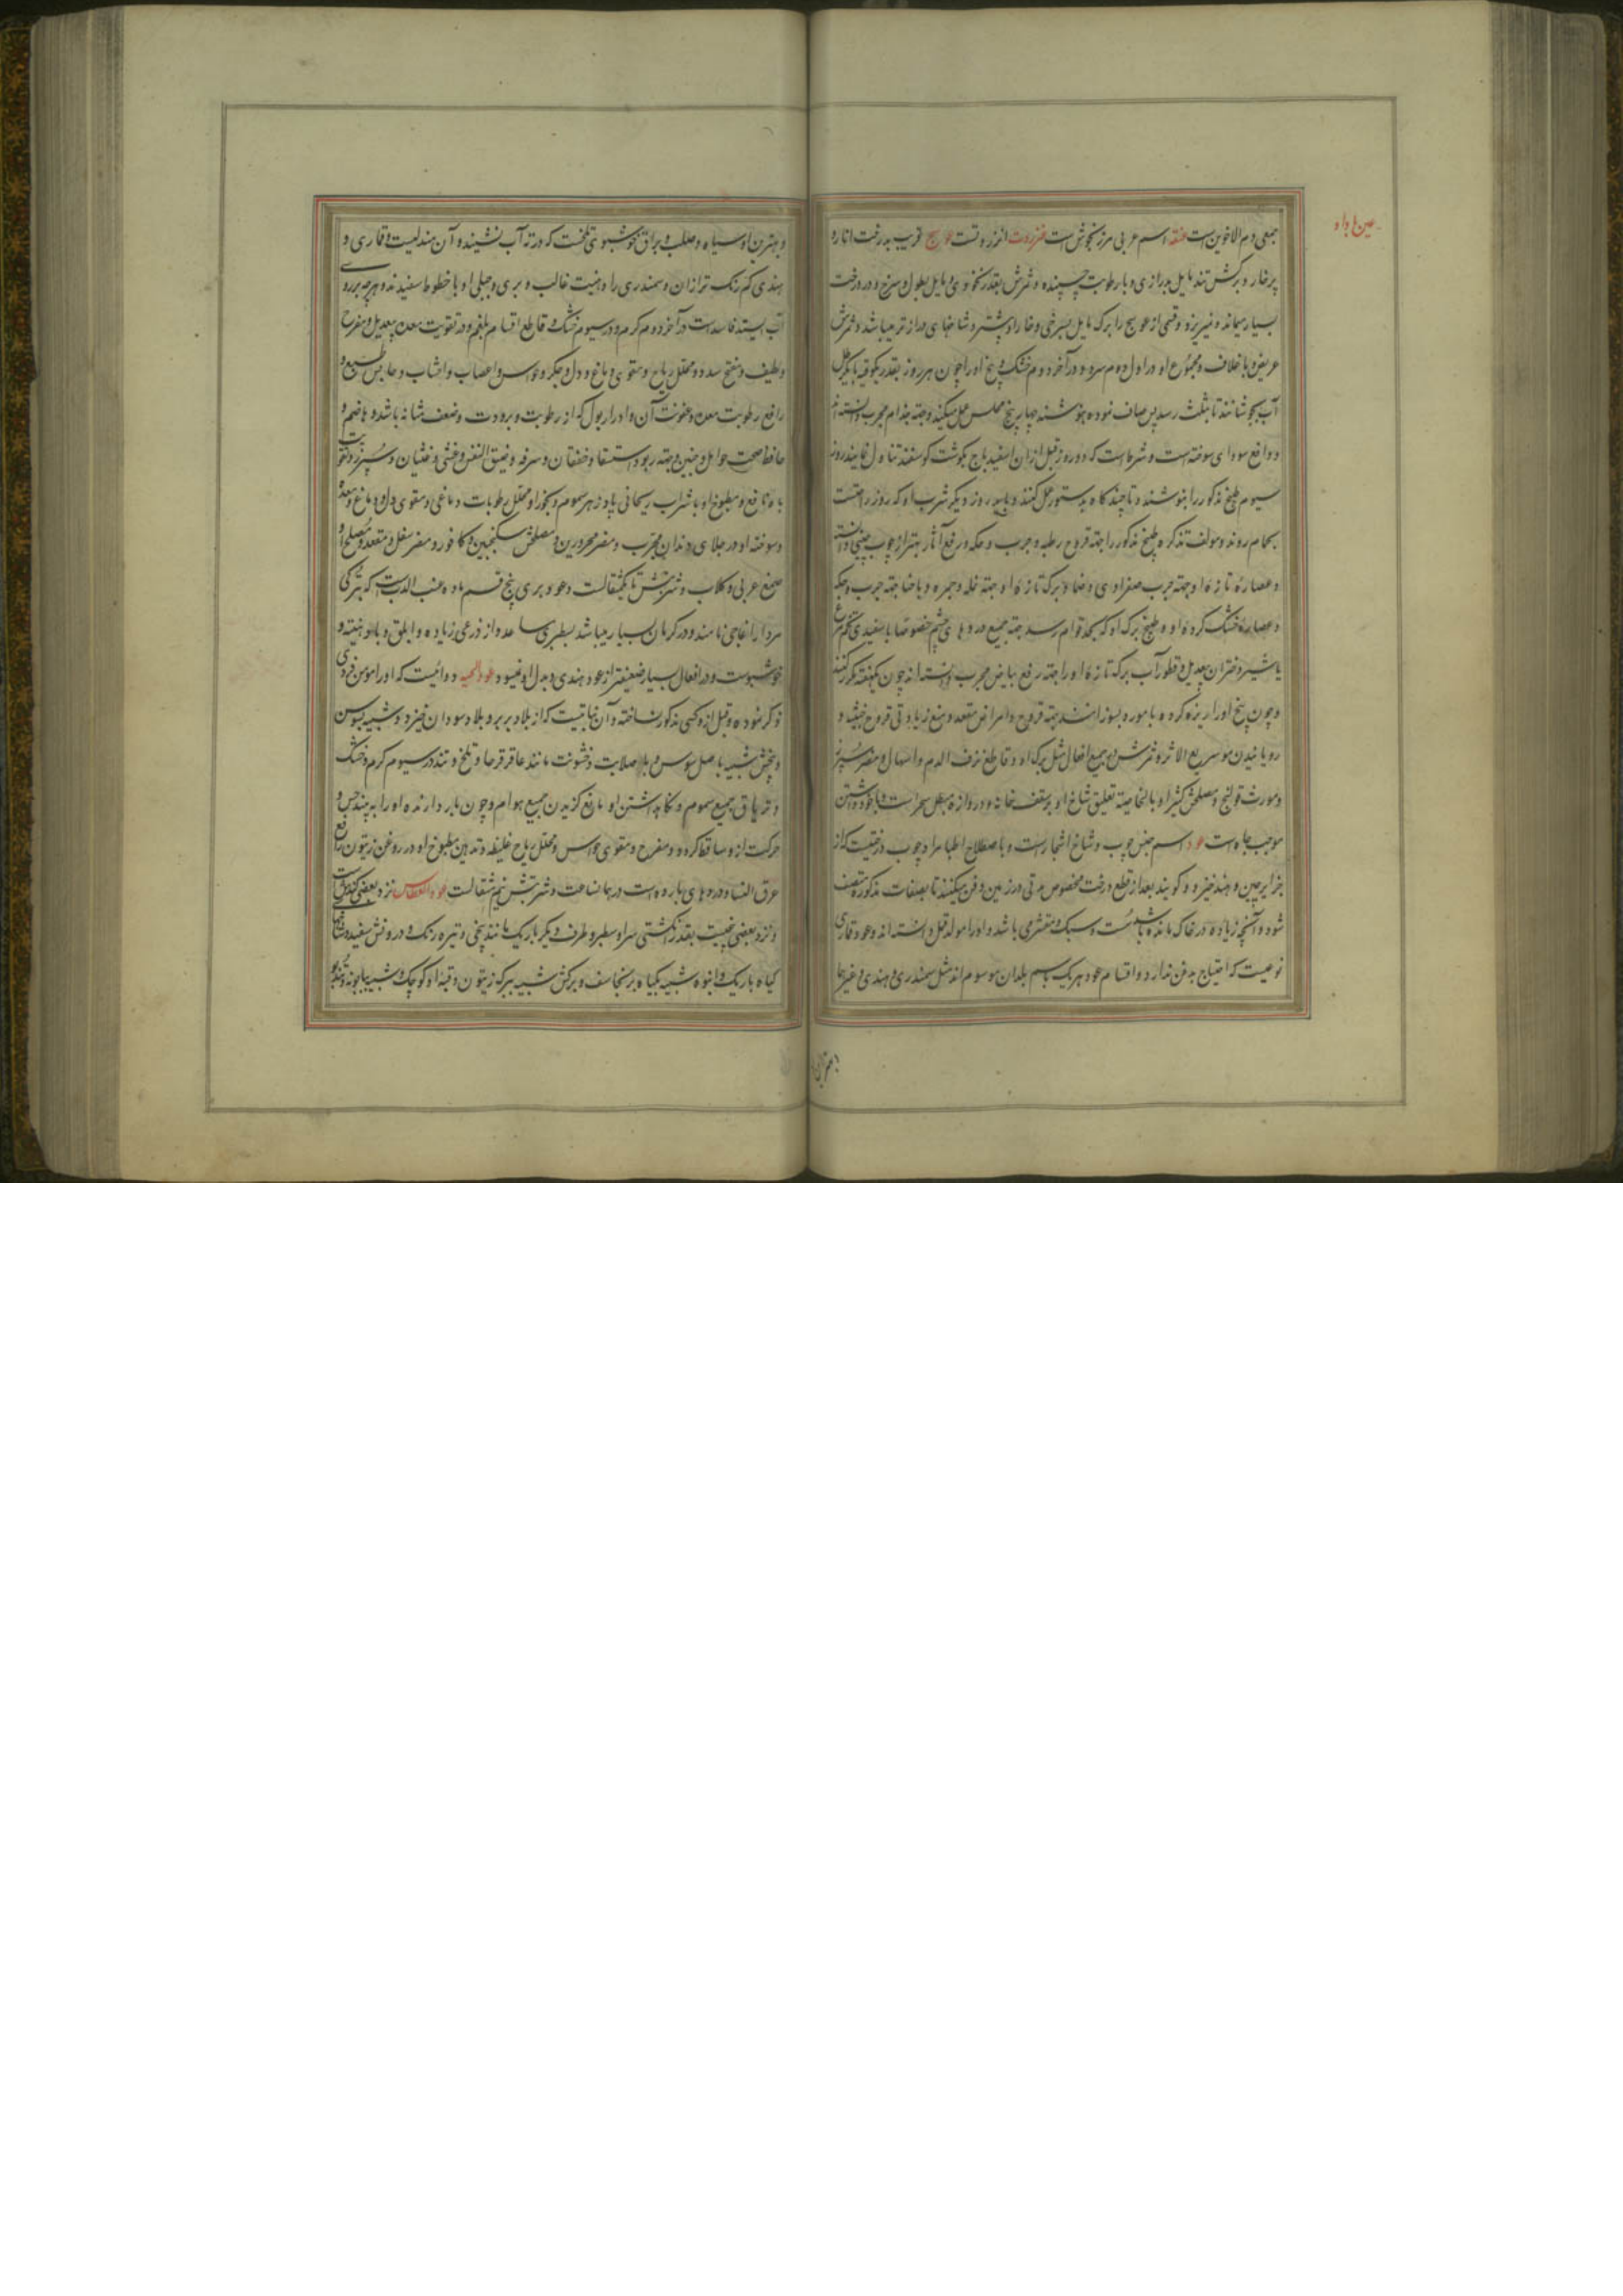 عین با واو
جمعی دم الاخوین است عنقد اسم عربی مرزنجوش است عنزروت انزروتست عوسج قریب بدرخت انار و
پرخار و برکش تند مایل بدرازی و با رطوبت چسپنده و ثمرش بقدر نخودی و مایل بطول و سرخ و در درخت
بسیار میماند و نمیریزد و قسمی از عوسج را برک مایل بسرخی و خار او بیشتر و شاخهای دراز تر میباشد و ثمرش
عریض و با غلاف و مجموع او در اول دوم سرد و در آخر دوم خشک و بیخ او را چون هر روز بقدر یکوقیه با یکرطل
آب بجوشانند تا بثلث رسد پس صاف نموده بنوشند چهار پنج مجلس عمل میکند و جهة جذام مجرب دانسته اند
و دافع سودای سوخته است و شرط است که دو روز قبل از ان اسفیدباج بکوشت کوسفند تناول نمایند روز
سیوم طبیخ مذکور را بنوشند و تا چند کاه بدستور عمل کنند و باید روز دیکر شرب او که روز راحتست
بحمام روند و مولف تذکره طبیخ مذکور را جهة قروح رطبه و جرب و حکه و رفع آثار بهتر از چوب چینی دانسته
و عصاره تازه او جهة جرب صفراوی و ضماد برک تازه او جهة نمله و جمره و با حنا جهة جرب و حکه
و عصاره خشک کرده او و طبیخ برک او که بحد قوام رسد جهة جمیع درد های چشم خصوصا با سفیدی تخم مرغ
یا شیر دختران بیعدیل و قطور آب برک تازه او را جهة رفع بیاض مجرب دانسته اند چون یکهفته مکرر کنند
و چون بیخ اورا ریزه کرده با موره بسوزانند جهة قروح و امراض مقعد و منع زیادتی قروح خبیثه و
رویانیدن مو سریع الاثر و ثمرش در جمیع افعال مثل برک او و قاطع نزف الدم و اسهال و مضر سپرز
و مورث قولنج و مصلحش کثیرا و بالخاصیة تعلیق شاخ او بر سقف خانه و دروازه مبطل سحر است و با خود داشتن
موجب جاه است عود اسم جنس چوب و شاخ اشجار است و باصطلاح اطبا مراد چوب درختیست که از
جزایر چین و هند خیزد و کویند بعد از قطع درخت مخصوص مدتی در زمین دفن میکنند تا بصفات مذکوره متصف
شود و آنچه زیاده در خاک مانده باشد سست و سبک و متقشری باشد و او را مولد قمل دانسته اند و عود قماری
نوعیست که احتیاج بدفن ندارد و اقسام عود هر یک باسم بلدان موسوم اند مثل سمندری و هندی و غیرها
و بهترین او سیاه و صلب و براق خوشبوی تلخست که در ته آب نشیند و آن مندلیست و قماری و
هندی کم رنک تر از ان و سمندری را دهنیت غالب و بری و جبلی او با خطوط سفیدند و هر چه بر روی
آب ایستد فاسد است در آخر دوم کرم و در سیوم خشک و قاطع اقسام بلغم و در تقویت معده بیعدیل و مفرح
و لطیف و مفتح سدد و محلل ریاح و مقوی دماغ و دل و جکر و حواس و اعصاب و احشاب و حابس طبع و
رافع رطوبت معده و عفونت آن و ادرار بول که از رطوبت و برودت و ضعف مثانه باشد و هاضم و
حافظ صحت حوامل و جنین و جهة ربو و استسقا و خفقان و سرفه و ضیق النفس و غشی و غثیان و سپرز و تقویت
باه نافع و مطبوخ او با شراب ریحانی پادزهر سموم و بخور او محلل رطوبات دماغی و مقوی دل و دماغ و معده
و سوخته او در جلای دندان مجرب و مضر محرورین و مصلحش سکنجبین و کافور و مضر سفل و مقعد و مصلح او
صمغ عربی و کلاب و شربتش تا یکمثقالست و عود بری پنج قسم ماده عنب الدب است که بترکی
مردار اغاجی نامند و در کرمان بسیار میباشد بسطبری ساعد و از ذرعی زیاده و ابلق و با دهنیة و
خوشبوست و در افعال بسیار ضعیفتر از عود هندی و بدل او نمیشود عود الحیه دوائیست که او را مومن فردی
ذکر نموده و قبل ازو کسی مذکور نساخته و آن نباتیست که از بلاد بربر و بلاد سودان خیزد و شبیه بسوسن
و بیخش شبیه باصل سوس و با صلابت و خشونت مانند عاقرقرحا و تلخ و تند در سیوم کرم و خشک
و تریاق جمیع سموم و نکاه داشتن او مانع کزیدن جمیع هوام و چون بار دارنده او را به بیند حس و
حرکت ازو ساقط کردد و مفرح و مقوی حواس و محلل ریاح غلیظه و تدهین مطبوخ او در روغن زیتون رافع
عرق النسا و دردهای بارده است در همان ساعت و شربتش نیم مثقالست عود العطاس نزد بعضی کندش است
و نزد بعضی بیخیست بقدر انکشتی سر او سطبر و طرف دیکر باریک مانند بیخی و تیره رنک و درونش سفید و شاخها
کیاه باریک و انبوه شبیه بکیاه برنجاسف و برکش شبیه ببرک زیتون و قبه او کوچک و شبیه ببابونه و تند بو